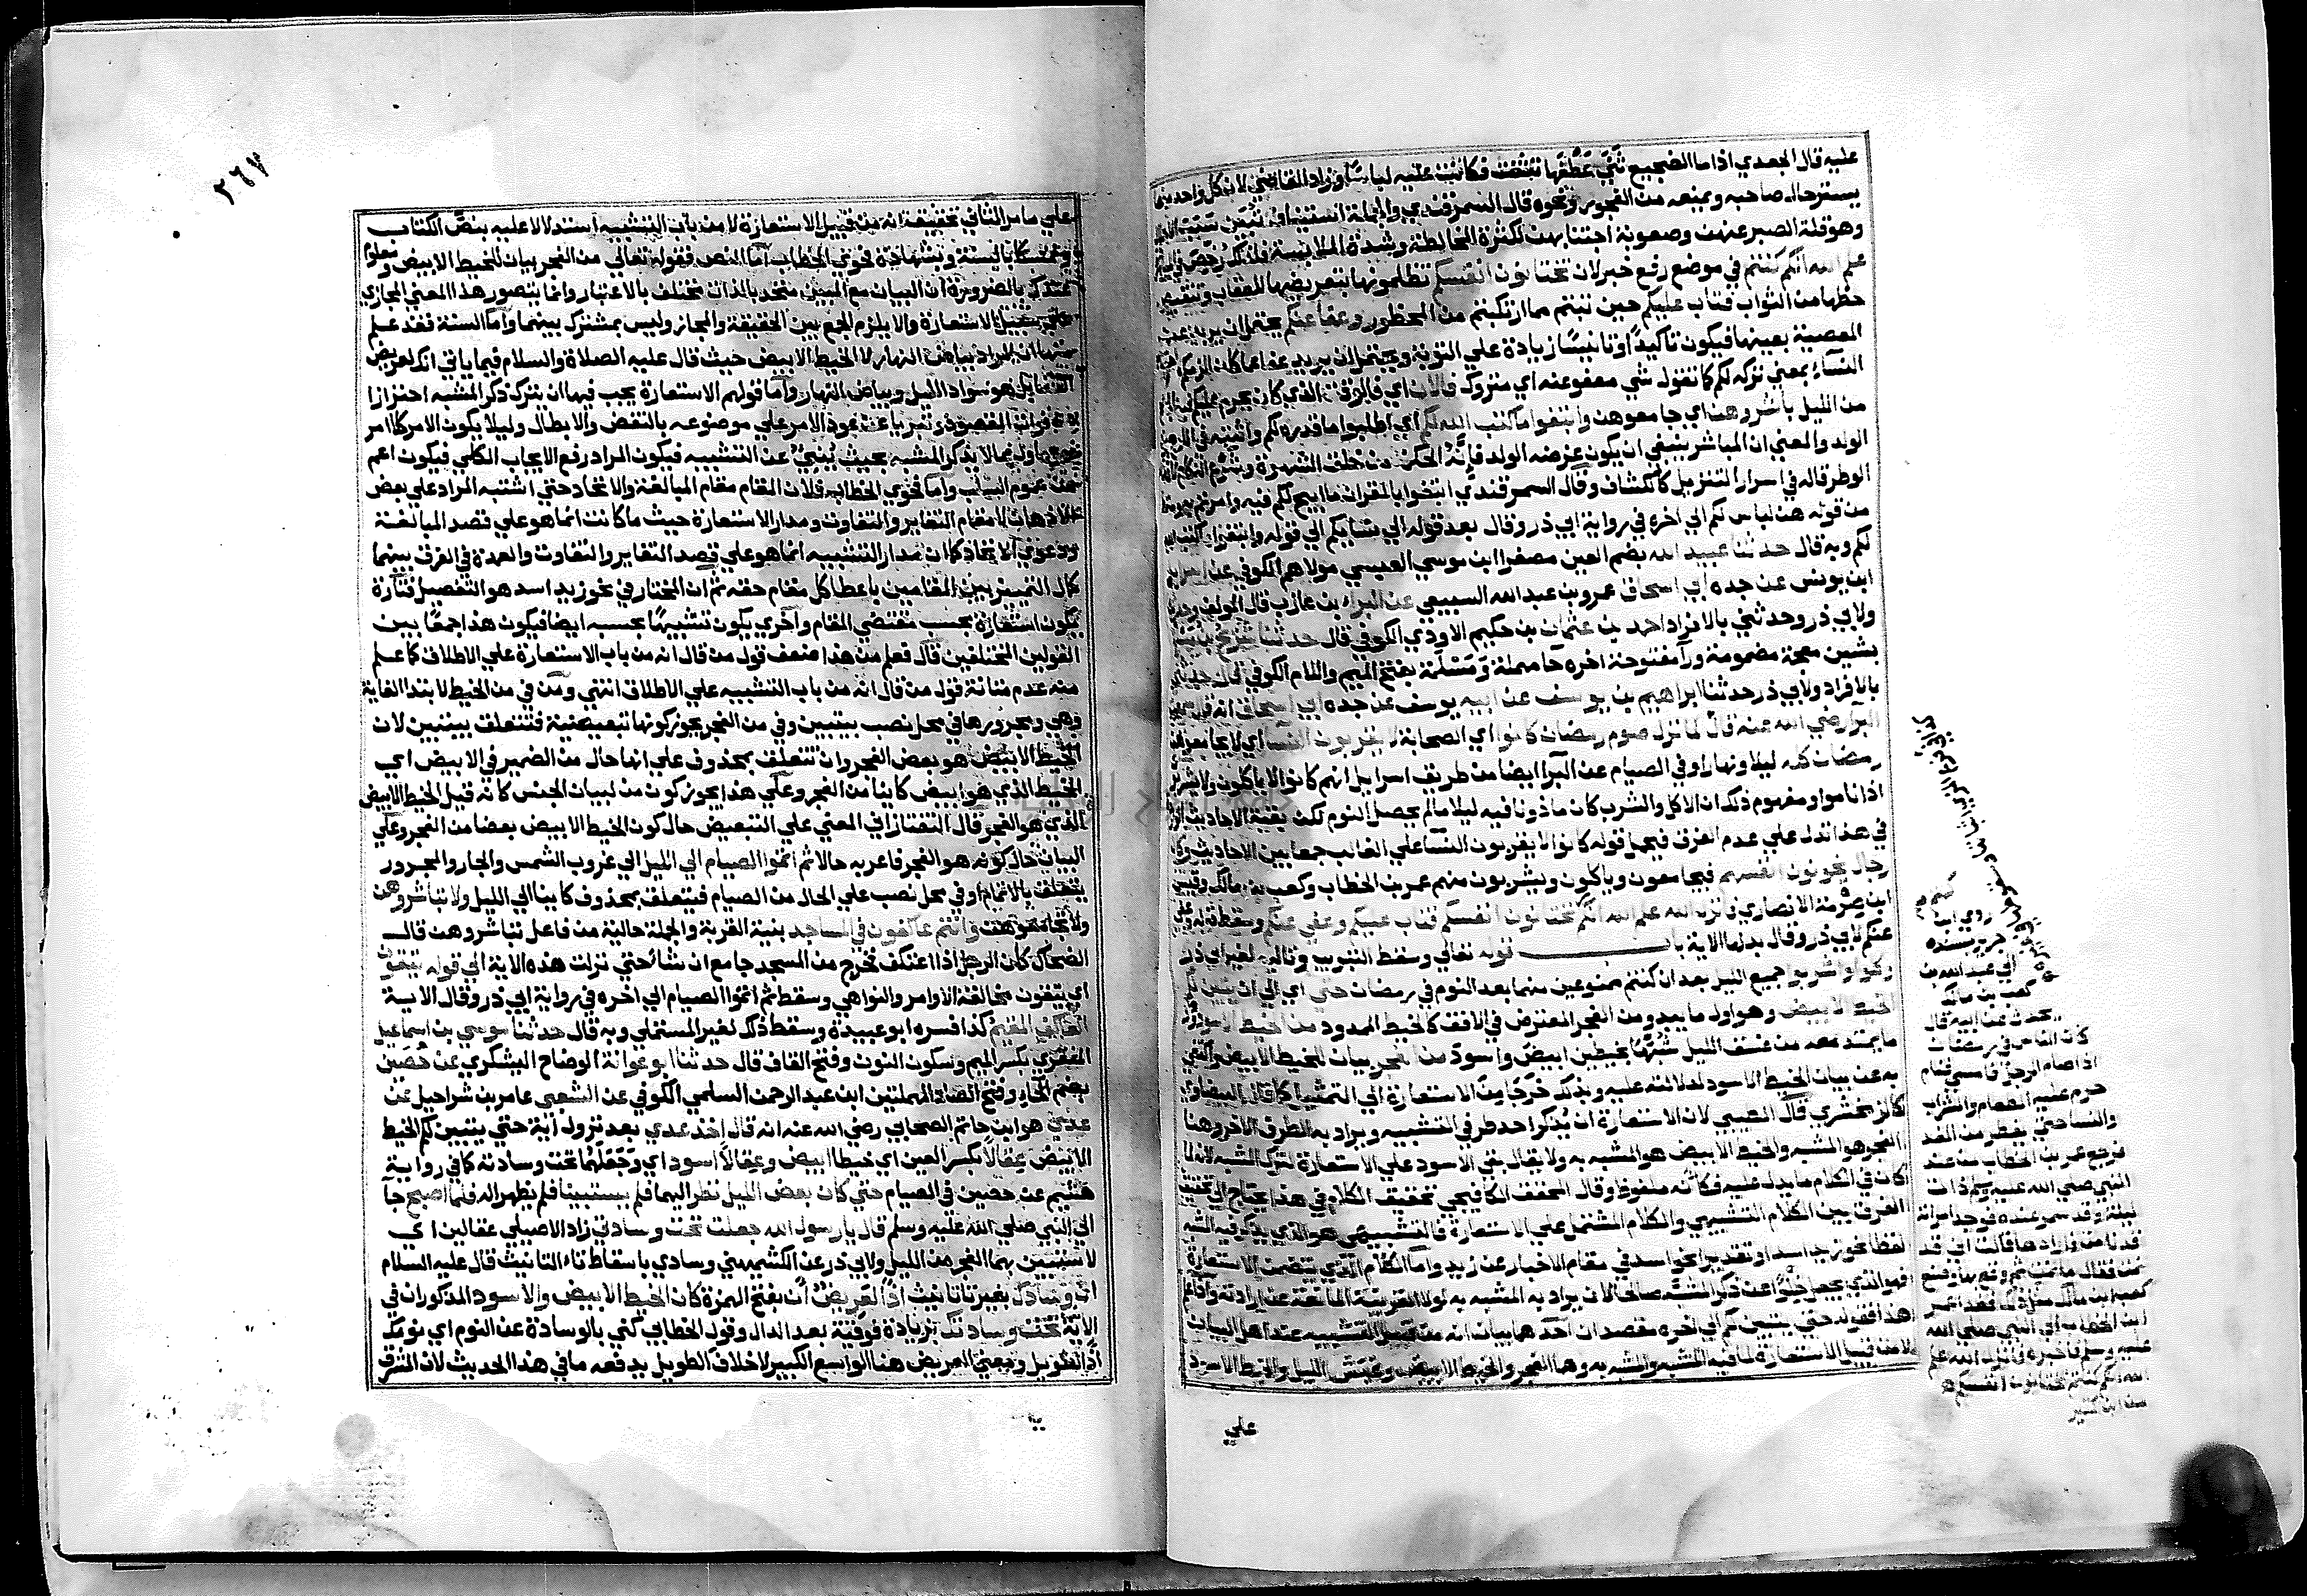 عليه قال الجعدي اذا ما الضجيع ثني عطفها تثنت فكانت عليه لباسا وزاد القاضي لان كل واحد منهما
يستر حال صاحبه ويمنعه من الفجور ونحوه قال السمرقندي والجملة استئناف تبين سبب
وهو قلة الصبر عنهن وصعوبة اجتنابهن لكثرة المخالطة وشدة الملابسة فلذلك رخص في
علم الله انكم كنتم في موضع رفع خبر لان تختانون انفسكم تظلمونها بتعريضها للعقاب وتنقيص
حظها من الثواب فتاب عليكم حين تبتم مما ارتكبتم من المحظور وعفا عنكم يحتمل ان يريد عن
المعصية بعينها فيكون تاكيدا او تانيسا زيادة علي التوبة ويحتمل ان يريد عفا عما كان الزمكم
النساء بمعني تركه لكم كما تقول شي معفو عنه اي متروك فالان اي فالوقت الذي كان يحرم عليكم فيه
من الليل باشروهن اي جامعوهن وابتغوا ما كتب الله لكم اي اطلبوا ما قدره لكم واثبته في
الولد والمعني ان المباشر ينبغي ان يكون غرضه الولد فانه الحكمة من خلق الشهوة وشرع
الوطر قاله في اسرار التنزيل كالكشاف وقال السمرقندي ابتغوا بالقران ما ابيح لكم فيه وامرتم
من قوله هن لباس لكم الي اخره في رواية ابي ذر وقال بعد قوله الي نسايكم الي قوله وابتغوا ما كتب الله
لكم وبه قال حدثنا عبيد الله بضم العين مصغرا ابن موسي العبسي مولاهم الكوفي عن
ابن يونس عن جده ابي اسحاق عمرو بن عبد الله السبيعي عن البراء بن عازب قال المولف
ولابي ذر وحدثني بالافراد احمد بن عثمان بن حكيم الاودي الكوفي قال حدثنا شريح
بشين معجمة مضمومة ورا مفتوحة اخره حا مهملة ومسلمة بفتح الميم واللام الكوفي قال
بالافراد ولابي ذر حدثنا ابراهيم بن يوسف عن ابيه يوسف عن جده ابي اسحاق انه قال
البرا رضي الله عنه قال لما نزل صوم رمضان كانوا اي الصحابة لا يقربون النسا اي لا يجامعونهن
رمضان كله ليلا ونهارا وفي الصيام عن البرا ايضا من طريق اسرايل انهم كانوا لا ياكلون ولا يشربون
اذا ناموا ومفهوم ذلك ان الاكل والشرب كان ماذونا فيه ليلا ما لم يحصل النوم لكن بقية الاحاديث
في هذا تدل علي عدم الفرق فيحمل قوله كانوا لا يقربون النسا علي الغالب جمعا بين الاحاديث
رجال يخونون انفسهم فيجامعون وياكلون ويشربون منهم عمر بن الخطاب وكعب بن مالك وقيس
ابن صرمة الانصاري فانزل الله علم الله انكم كنتم تختانون انفسكم فتاب عليكم وعفي عنكم وسقط
عنكم لابي ذر وقال بدلها الاية باب قوله تعالي وسقط التبويب وتاليه لغير ابي ذر
وكلوا واشربوا جميع الليل بعد ان كنتم ممنوعين منهما بعد النوم في رمضان حتي اي الي ان يتبين لكم
الخيط الابيض وهو اول ما يبدو من الفجر المعترض في الافق كالخيط الممدود من الخيط الاسود
ما يمتد معه من غبش الليل شبها بخيطين ابيض واسود من الفجر بيان للخيط الابيض واكتفي
به عن بيان الخيط الاسود لدلالته عليه وبذلك خرجا من الاستعارة الي التمثيل كما قال البيضاوي
كالزمخشري قال الطيبي لان الاستعارة ان يذكر احد طرفي التشبيه ويراد به الطرف الاخر وهنا
الفجر هو المشبه والخيط الابيض هو المشبه به ولا يقال بقي الاسود علي الاستعارة لترك المشبه لانه لما
كان في الكلام ما يدل عليه فكانه ملفوظ وقال المحقق الكافيجي تحقيق الكلام في هذا يحتاج الي تحقيق
الفرق بين الكلام التشبيهي والكلام المشتمل علي الاستعارة فالتشبيهي هو الذي يذكر فيه المشبه
لفظا نحو زيد اسد او تقديرا نحو اسد في مقام الاخبار عن زيد واما الكلام الذي يتضمن الاستعارة
فهو الذي يجعل خلوا عن ذكر المشبه صالحا لان يراد به المشبه به لولا القرينة المانعة عن ارادته
هذا فقوله حتي يتبين لكم الي اخره مقصدان احدهما بيان انه من قبيل التشبيه عند اهل البيان
لا من قبيل الاستعارة لما فيه المشبه والمشبه به وهما الفجر والخيط الابيض وغبش الليل والخيط الاسود
علي
روي ابن
جرير بسنده
الي عبد الله بن
كعب بن مالك
يحدث عن ابيه قال
كان الناس في رمضان
اذا صام الرجل فامسي فنام
حرم عليه الطعام والشراب
والنسا حتي يفطر من الغد
فرجع عمر بن الخطاب من عند
النبي صلي الله عليه وسلم ذات
ليلة وقد سمر عنده فوجد امراته
قد نامت فارادها فقالت اني قد
نمت فقال ما نمت ثم وقع بها وصنع
كعب ابن مالك مثل ذلك فغدا عمر
ابن الخطاب الي النبي صلي الله
عليه وسلم فاخبره فانزل الله علم
الله انكم كنتم تختانون انفسكم
ابن كثير
٢٦٧
علي ما مر الثاني تحقيقه انه من تخييل الاستعارة لا من باب التشبيه استدلالا عليه بنص الكتاب
وتمسكا بالسنة وبشهادة فحوي الخطاب اما النص فقوله تعالي من الفجر بيان للخيط الابيض ومعلوم
عندك بالضرورة ان البيان مع المبين متحد بالذات مختلف بالاعتبار وانما يتصور هذا المعني المجازي
علي سبيل الاستعارة والا يلزم الجمع بين الحقيقة والمجاز وليس بمشترك بينهما واما السنة فقد علم
منها ان المراد بياض النهار لا الخيط الابيض حيث قال عليه الصلاة والسلام فيما ياتي انك لعريض
القفا بل هو سواد الليل وبياض النهار واما قولهم الاستعارة يجب فيها ان يترك ذكر المشبه احترازا
عن فوات المقصود وتبريا عن عود الامر علي موضوعه بالنقض والابطال وليلا يكون الامر كلا امر
فماول بما لا يذكر المشبه بحيث ينبئ عن التشبيه فيكون المراد رفع الايجاب الكلي فيكون اعم
من عموم السلب واما فحوي الخطاب فلان المقام مقام المبالغة والاتحاد حتي اشتبه المراد علي بعض
الاذهان لا مقام التغاير والتفاوت ومدار الاستعارة حيث ما كانت انما هو علي قصد المبالغة
ودعوي الاتحاد كما ان مدار التشبيه انما هو علي قصد التغاير والتفاوت والعمدة في الفرق بينهما
كمال التمييز بين المقامين باعطا كل مقام حقه ثم ان المختار في نحو زيد اسد هو التفصيل فتارة
يكون استعارة بحسب مقتضي المقام واخري يكون تشبيها بحسبه ايضا فيكون هذا جمعا بين
القولين المختلفين قال فعلم من هذا ضعف قول من قال انه من باب الاستعارة علي الاطلاق كما علم
منه عدم متانة قول من قال انه من باب التشبيه علي الاطلاق انتهي ومن في من الخيط لابتدا الغاية
وهي ومجرورها في محل نصب بيتبين وفي من الفجر يجوز كونها تبعيضية فتتعلق بيتبين لان
الخيط الابيض هو بعض الفجر وان تتعلق بمحذوف علي انها حال من الضمير في الابيض اي
الخيط الذي هو ابيض كاينا من الفجر وعلي هذا يجوز كون من لبيان الجنس كانه قيل الخيط الابيض
الذي هو الفجر قال التفتازاني المعني علي التبعيض حال كون الخيط الابيض بعضا من الفجر وعلي
البيان حال كونه هو الفجر فاعربه حالا ثم اتموا الصيام الي الليل الي غروب الشمس والجار والمجرور
يتعلق بالاتمام او في محل نصب علي الحال من الصيام فيتعلق بمحذوف كاينا الي الليل ولا تباشروهن
ولا تجامعوهن وانتم عاكفون في المساجد بنية القربة والجملة حالية من فاعل تباشروهن قال
الضحاك كان الرجل اذا اعتكف فخرج من المسجد جامع ان شا حتي نزلت هذه الاية الي قوله يتقون
اي يتقون مخالفة الاوامر والنواهي وسقط ثم اتموا الصيام الي اخره في رواية ابي ذر وقال الاية
العاكف المقيم كذا فسره ابو عبيدة وسقط ذلك لغير المستملي وبه قال حدثنا موسي بن اسماعيل
المنقري بكسر الميم وسكون النون وفتح القاف قال حدثنا ابو عوانة الوضاح اليشكري عن حصين
بضم الحاء وفتح الصاد المهملتين ابن عبد الرحمن السلمي الكوفي عن الشعبي عامر بن شراحيل عن
عدي هو ابن حاتم الصحابي رضي الله عنه انه قال اخذ عدي بعد نزول اية حتي يتبين لكم الخيط
الابيض عقالا بكسر العين اي خيطا ابيض وعقالا اسود اي وجعلهما تحت وسادته كما في رواية
هشيم عن حصين في الصيام حتي كان بعض الليل نظر اليهما فلم يستبينا فلم يظهرا له فلما اصبح جا
الي النبي صلي الله عليه وسلم قال يا رسول الله جعلت تحت وسادتي زاد الاصيلي عقالين اي
لاستبين بهما الفجر من الليل ولابي ذر عن الكشميهني وسادي باسقاط تاء التانيث قال عليه السلام
ان وسادك بغير تا تانيث اذا لعريض ان بفتح الهمزة كان الخيط الابيض والاسود المذكوران في
الاية تحت وسادتك بزيادة فوقية بعد الدال وقول الخطابي كني بالوسادة عن النوم اي نومك
اذا لطويل ومعني العريض هنا الواسع الكبير لا خلاف الطويل يدفعه ما في هذا الحديث لان المشرق